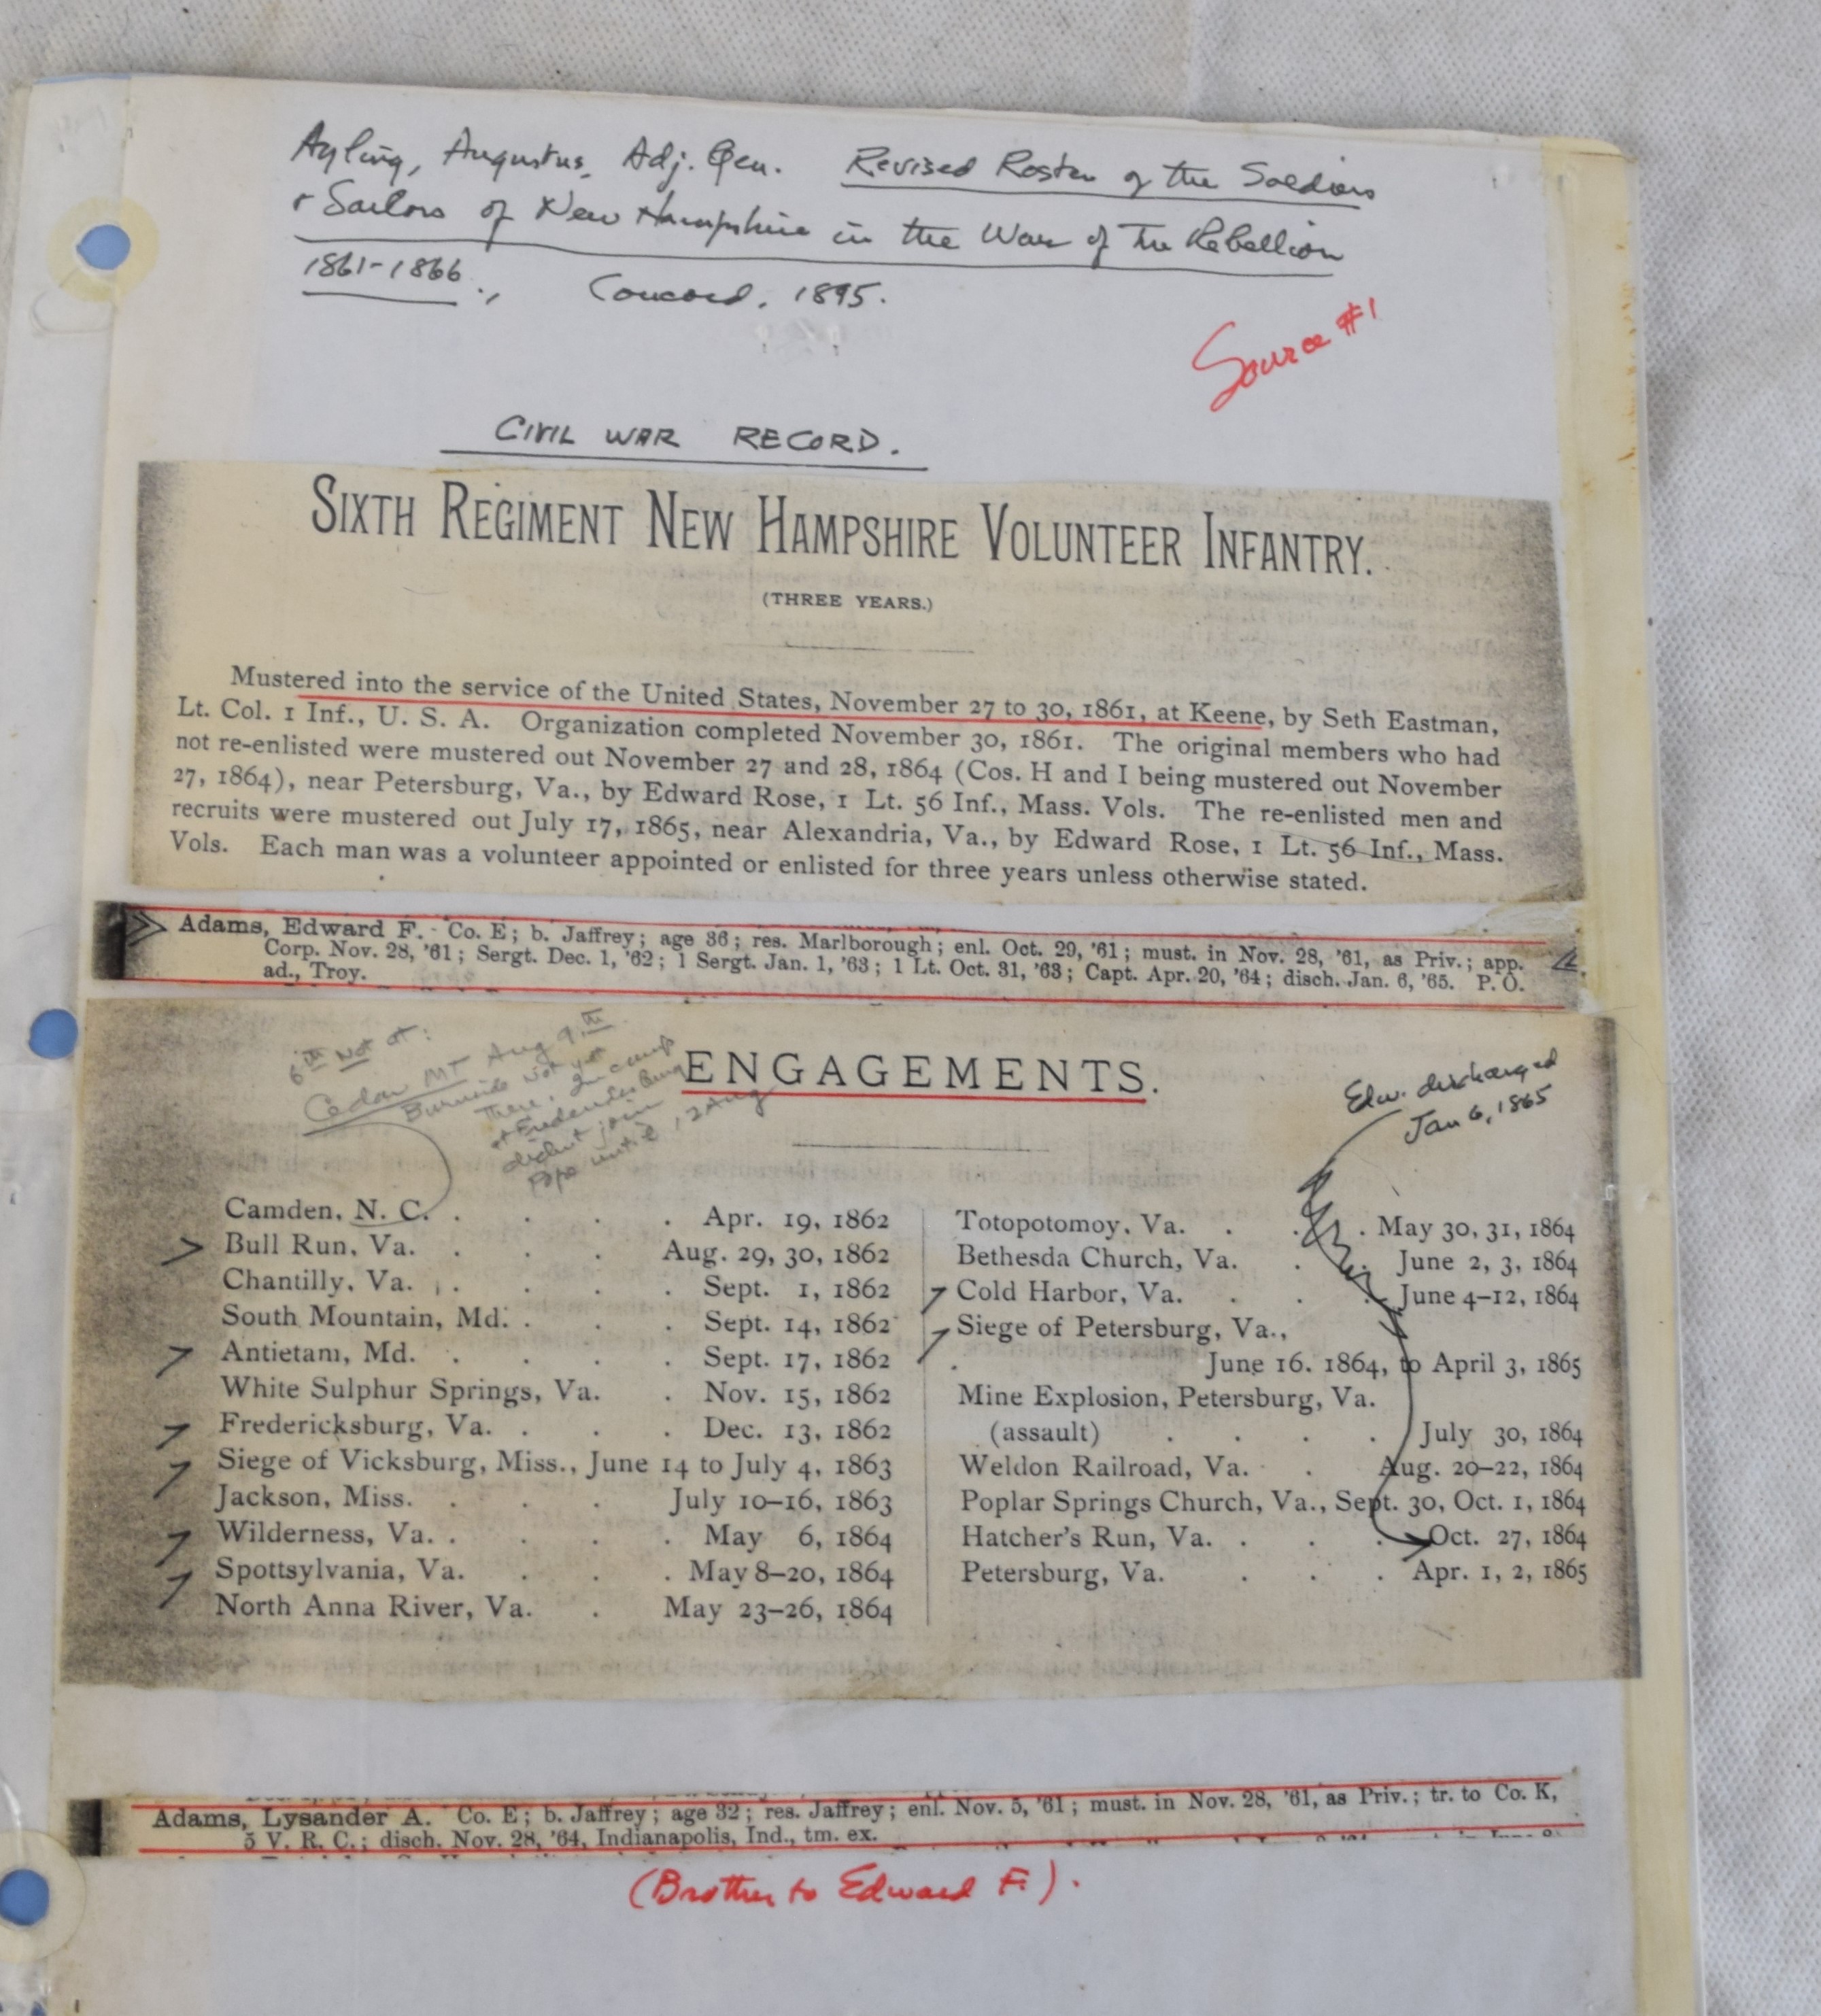 Ayling, Augustus, Adj. Gen. Revised Roster of the Soldiers
+ Sailors of New Hampshire in the War of the Rebellion
1861-1866., Concord. 1895.
Source #1
CIVIL WAR RECORD.
SIXTH REGIMENT NEW HAMPSHIRE VOLUNTEER INFANTRY.
(THREE YEARS.)
Mustered into the service of the United States, November 27 to 30, 1861, at Keene, by Seth Eastman,
Lt. Col. 1 Inf., U. S. A. Organization completed November 30, 1861. The original members who had
not re-enlisted were mustered out November 27 and 28, 1864 (Cos. H and I being mustered out November
27, 1864), near Petersburg, Va., by Edward Rose, 1 Lt. 56 Inf., Mass. Vols. The re-enlisted men and
recruits were mustered out July 17, 1865, near Alexandria, Va., by Edward Rose, 1 Lt. 56 Inf., Mass.
Vols. Each man was a volunteer appointed or enlisted for three years unless otherwise stated.
Adams, Edward F. Co. E; b. Jaffrey; age 36; res. Marlborough; enl. Oct. 29, '61; must. in Nov. 28, '61, as Priv.; app.
Corp. Nov. 28, '61; Sergt. Dec. 1, '62; 1 Sergt. Jan. 1, '63; 1 Lt. Oct. 31, '63; Capt. Apr. 20, '64; disch. Jan. 6, '65. P. O.
ad., Troy.
6th Not at:
Cedar Mt Aug 9th
Burnside not yet
there. In camp
at Fredericksburg
didnt join
Pope until 12 Aug
ENGAGEMENTS.
Edw. discharged
Jan 6, 1865
Camden, N. C. . . . . Apr. 19, 1862
Bull Run, Va. . . . Aug. 29, 30, 1862
Chantilly, Va. . . . . Sept. 1, 1862
South Mountain, Md. . . . Sept. 14, 1862
Antietam, Md. . . . . Sept. 17, 1862
White Sulphur Springs, Va. . Nov. 15, 1862
Fredericksburg, Va. . . . . Dec. 13, 1862
Siege of Vicksburg, Miss., June 14 to July 4, 1863
Jackson, Miss. . . . July 10–16, 1863
Wilderness, Va. . . . . May 6, 1864
Spottsylvania, Va. . . . May 8–20, 1864
North Anna River, Va. . May 23–26, 1864
Totopotomoy, Va. . . . May 30, 31, 1864
Bethesda Church, Va. . . June 2, 3, 1864
Cold Harbor, Va. . . . June 4–12, 1864
Siege of Petersburg, Va.,
June 16. 1864, to April 3, 1865
Mine Explosion, Petersburg, Va.
(assault) . . . . July 30, 1864
Weldon Railroad, Va. . . Aug. 20–22, 1864
Poplar Springs Church, Va., Sept. 30, Oct. 1, 1864
Hatcher's Run, Va. . . . Oct. 27, 1864
Petersburg, Va. . . . Apr. 1, 2, 1865
Adams, Lysander A. Co. E; b. Jaffrey; age 32; res. Jaffrey; enl. Nov. 5, '61; must. in Nov. 28, '61, as Priv.; tr. to Co. K,
5 V. R. C.; disch. Nov. 28, '64, Indianapolis, Ind., tm. ex.
(Brother to Edward F.).